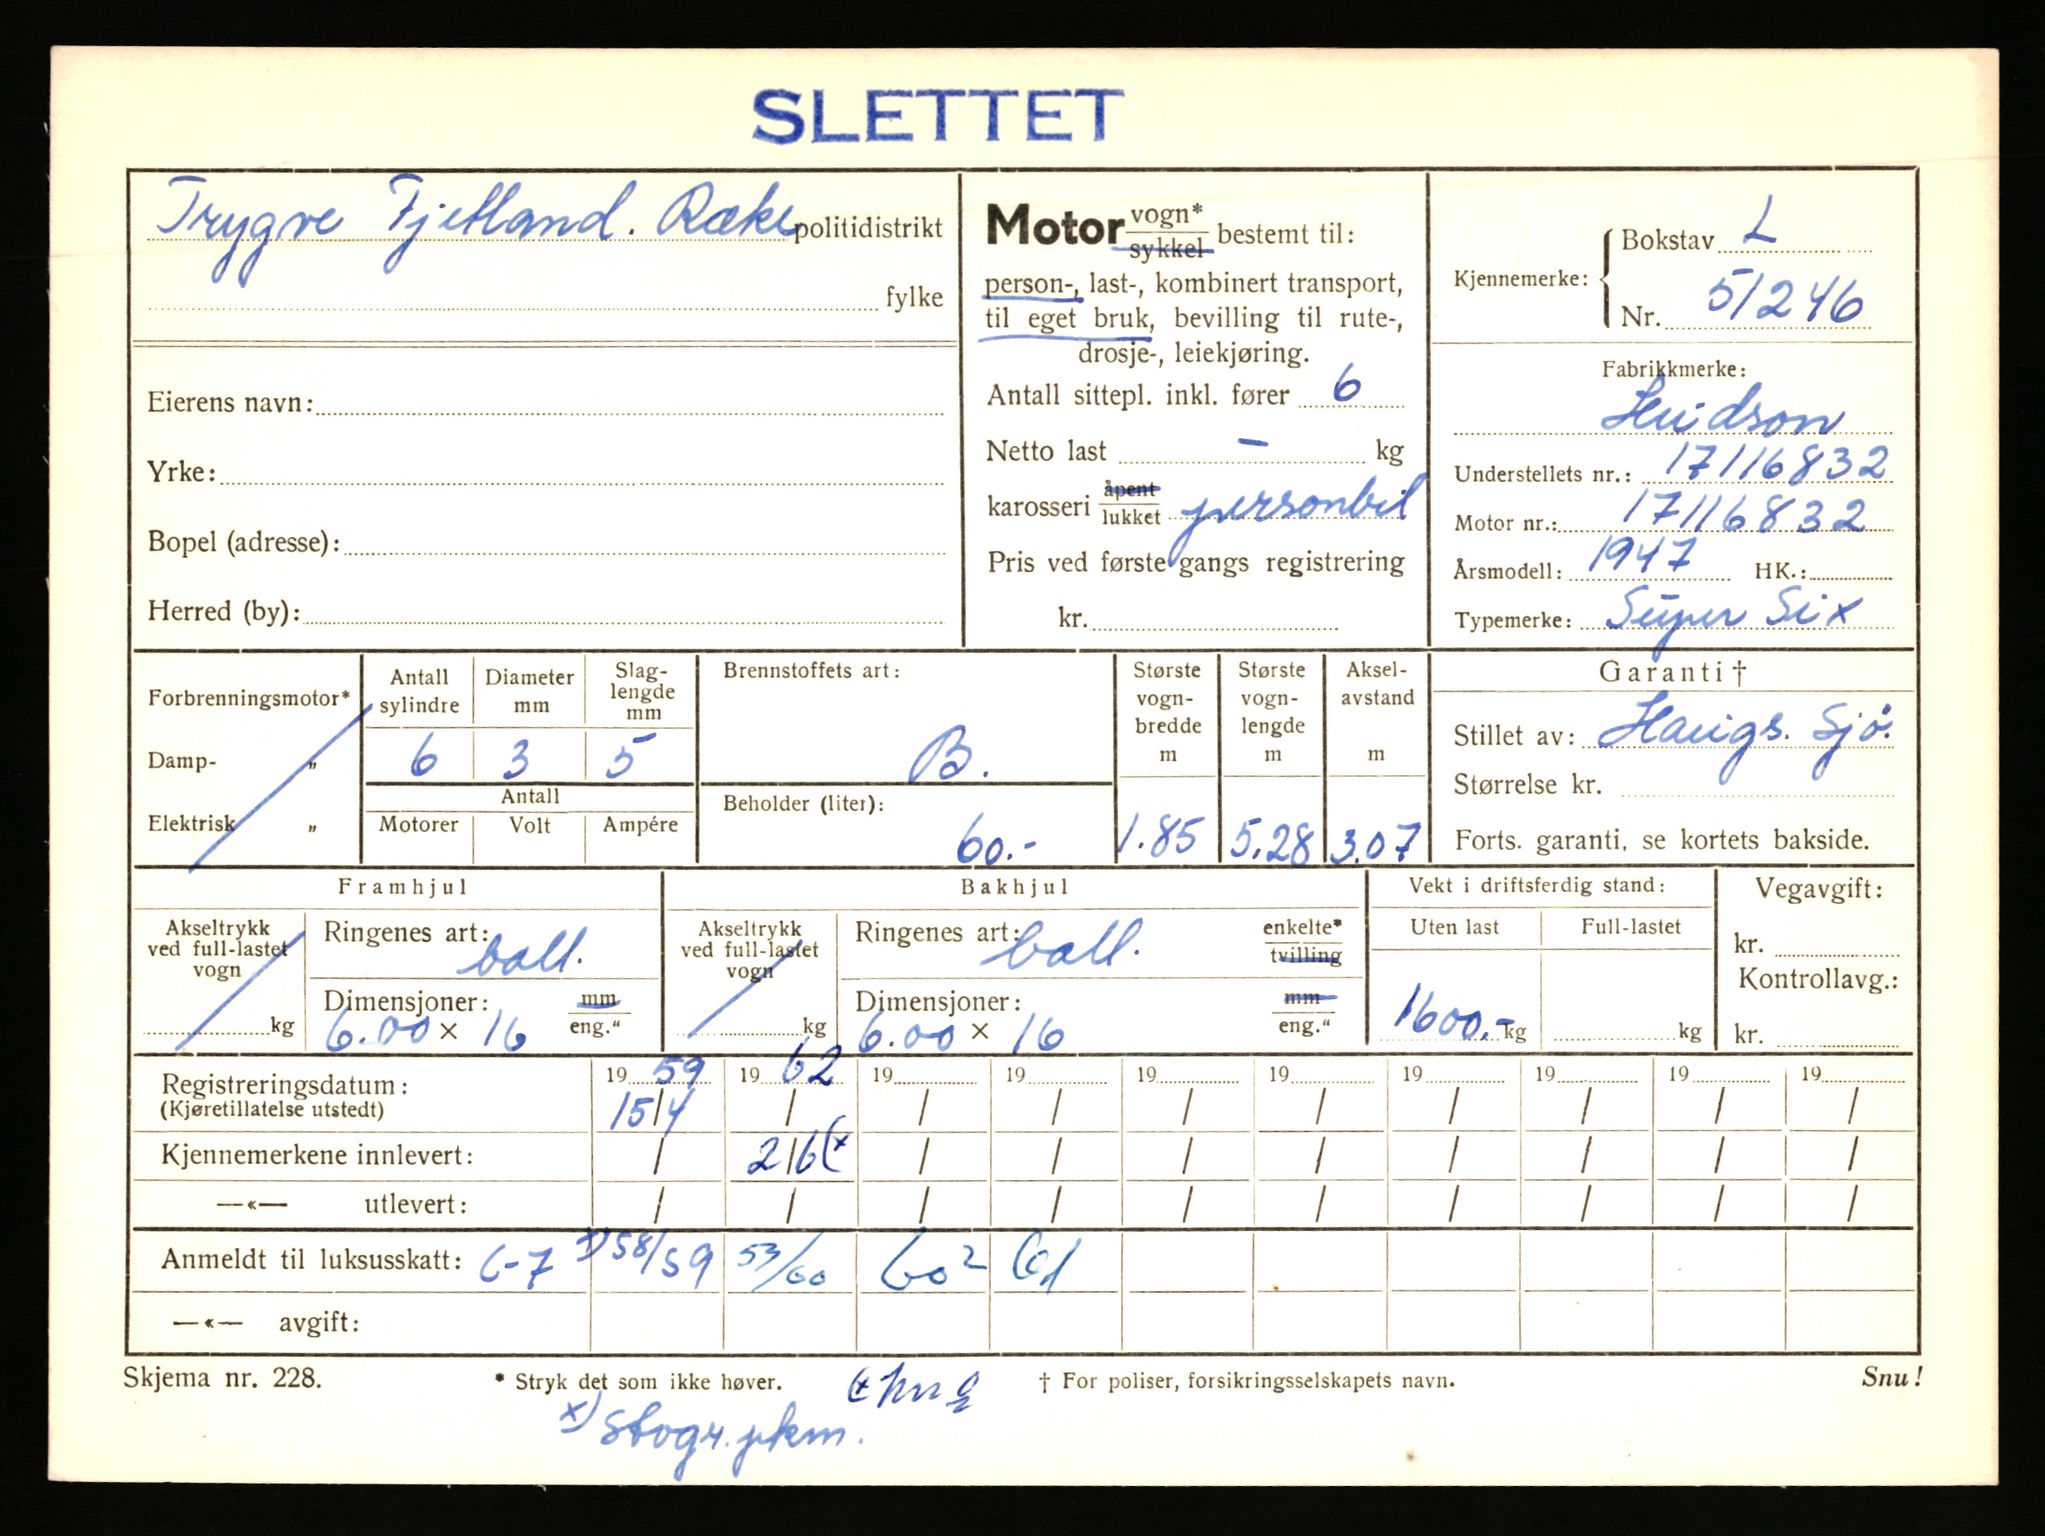 SLETTET
Trygve Fjetland. Ræke politidistrikt
fylke
Eierens navn:
Yrke:
Bopel (adresse):
Herred (by):
Motor vogn* / sykkel bestemt til:
person-, last-, kombinert transport,
til eget bruk, bevilling til rute-,
drosje-, leiekjøring.
Antall sittepl. inkl. fører 6
Netto last – kg
karosseri åpent / lukket personbil
Pris ved første gangs registrering
kr.
Kjennemerke: Bokstav L
Nr. 51246
Fabrikkmerke:
Hudson
Understellets nr.: 17116832
Motor nr.: 17116832
Årsmodell: 1947 HK.:
Typemerke: Super Six
Forbrenningsmotor*
Damp- „
Elektrisk „
Antall sylindre
Diameter mm
Slag-lengde mm
6 3 5
Antall
Motorer Volt Ampére
Brennstoffets art:
B.
Beholder (liter):
60.-
Største vogn-bredde m
1.85
Største vogn-lengde m
5.28
Aksel-avstand m
3.07
Garanti †
Stillet av: Haugs. Sjø.
Størrelse kr.
Forts. garanti, se kortets bakside.
Framhjul
Akseltrykk ved full-lastet vogn
kg
Ringenes art: ball.
Dimensjoner: mm / eng."
6.00 × 16
Bakhjul
Akseltrykk ved full-lastet vogn
kg
Ringenes art: ball. enkelte* / tvilling
Dimensjoner: mm / eng."
6.00 × 16
Vekt i driftsferdig stand:
Uten last Full-lastet
1600.- kg kg
Vegavgift:
kr.
Kontrollavg.:
kr.
Registreringsdatum: 19 59 19 62 19 19 19 19 19 19 19 19
(Kjøretillatelse utstedt) 15/4 / / / / / / / / /
Kjennemerkene innlevert: / 2/6 (x / / / / / / / /
—«— utlevert: / / / / / / / / / /
Anmeldt til luksusskatt: 6-7 x) 58/59 53/60 60² 61
—«— avgift:
Skjema nr. 228. * Stryk det som ikke høver. † For poliser, forsikringsselskapets navn. Snu!
x)